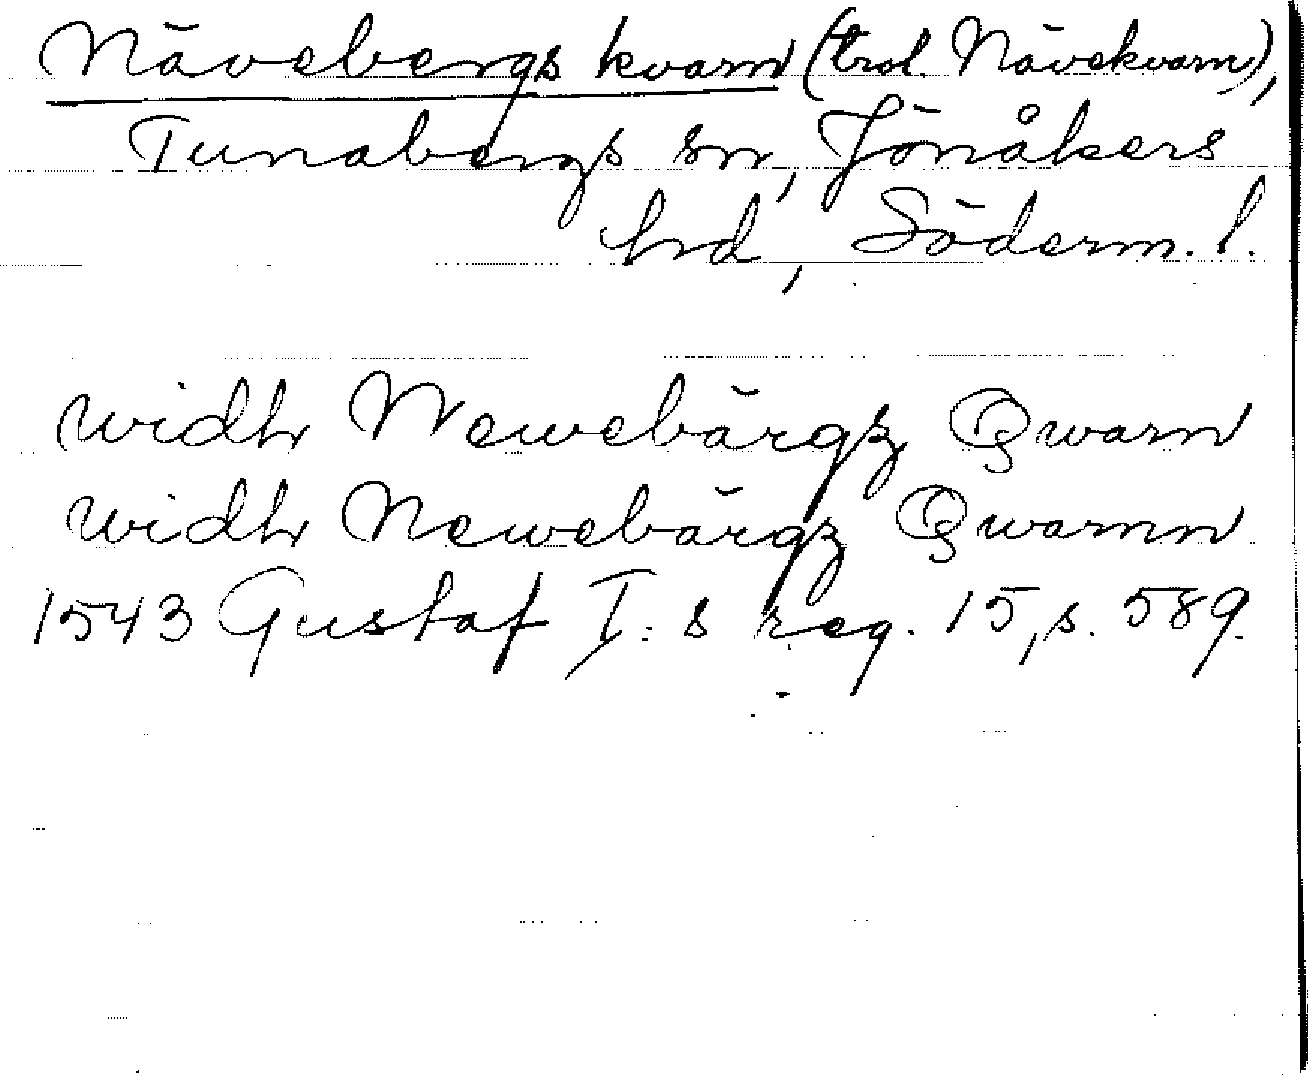 Nävebergs kvarn (trol. Nävekvarn),
Tunabergs sn, Jönåkers
hd, Söderm. l.
widh Newebärgz Qwarn
widh Newebärgz Qwarnn
1543 Gustaf I:s reg. 15, s. 589.